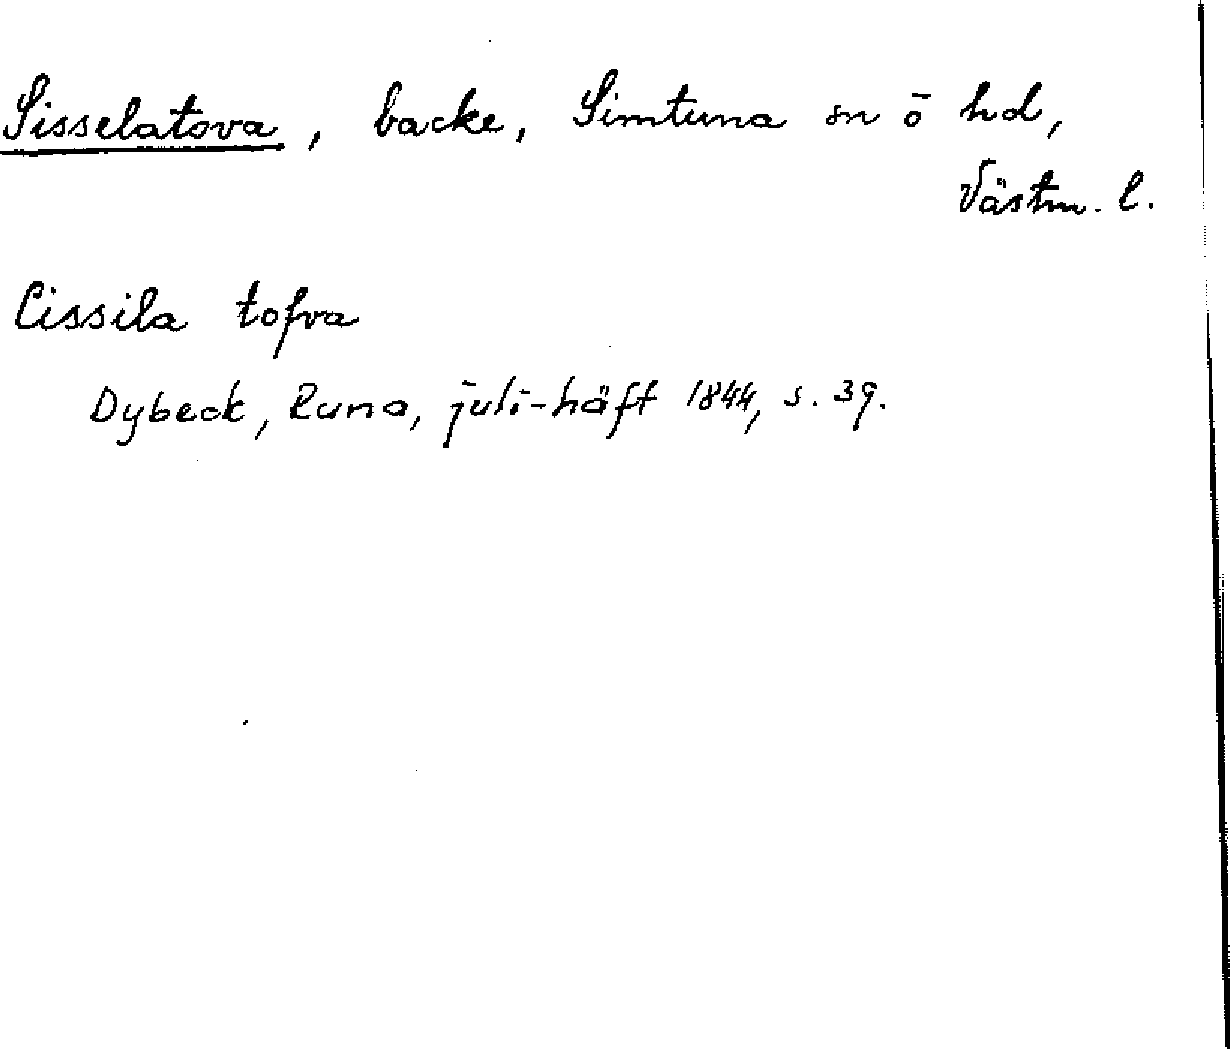 Sisselatova, backe, Simtuna sn o hd,
Västm. l.
Cissila tofva
Dybeck, Runa, juli-häft 1844, s. 39.